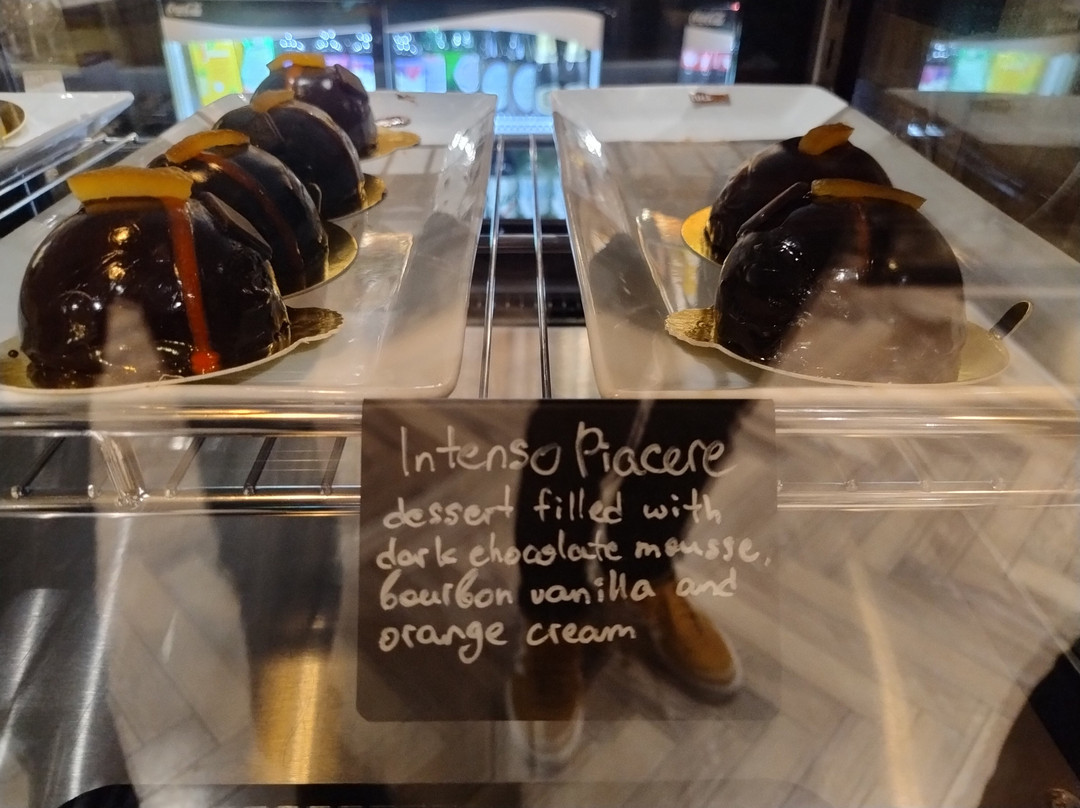 Coca-Cola
Coca-Cola
Intenso Piacere
dessert filled with
dark chocolate mousse,
bourbon vanilla and
orange cream